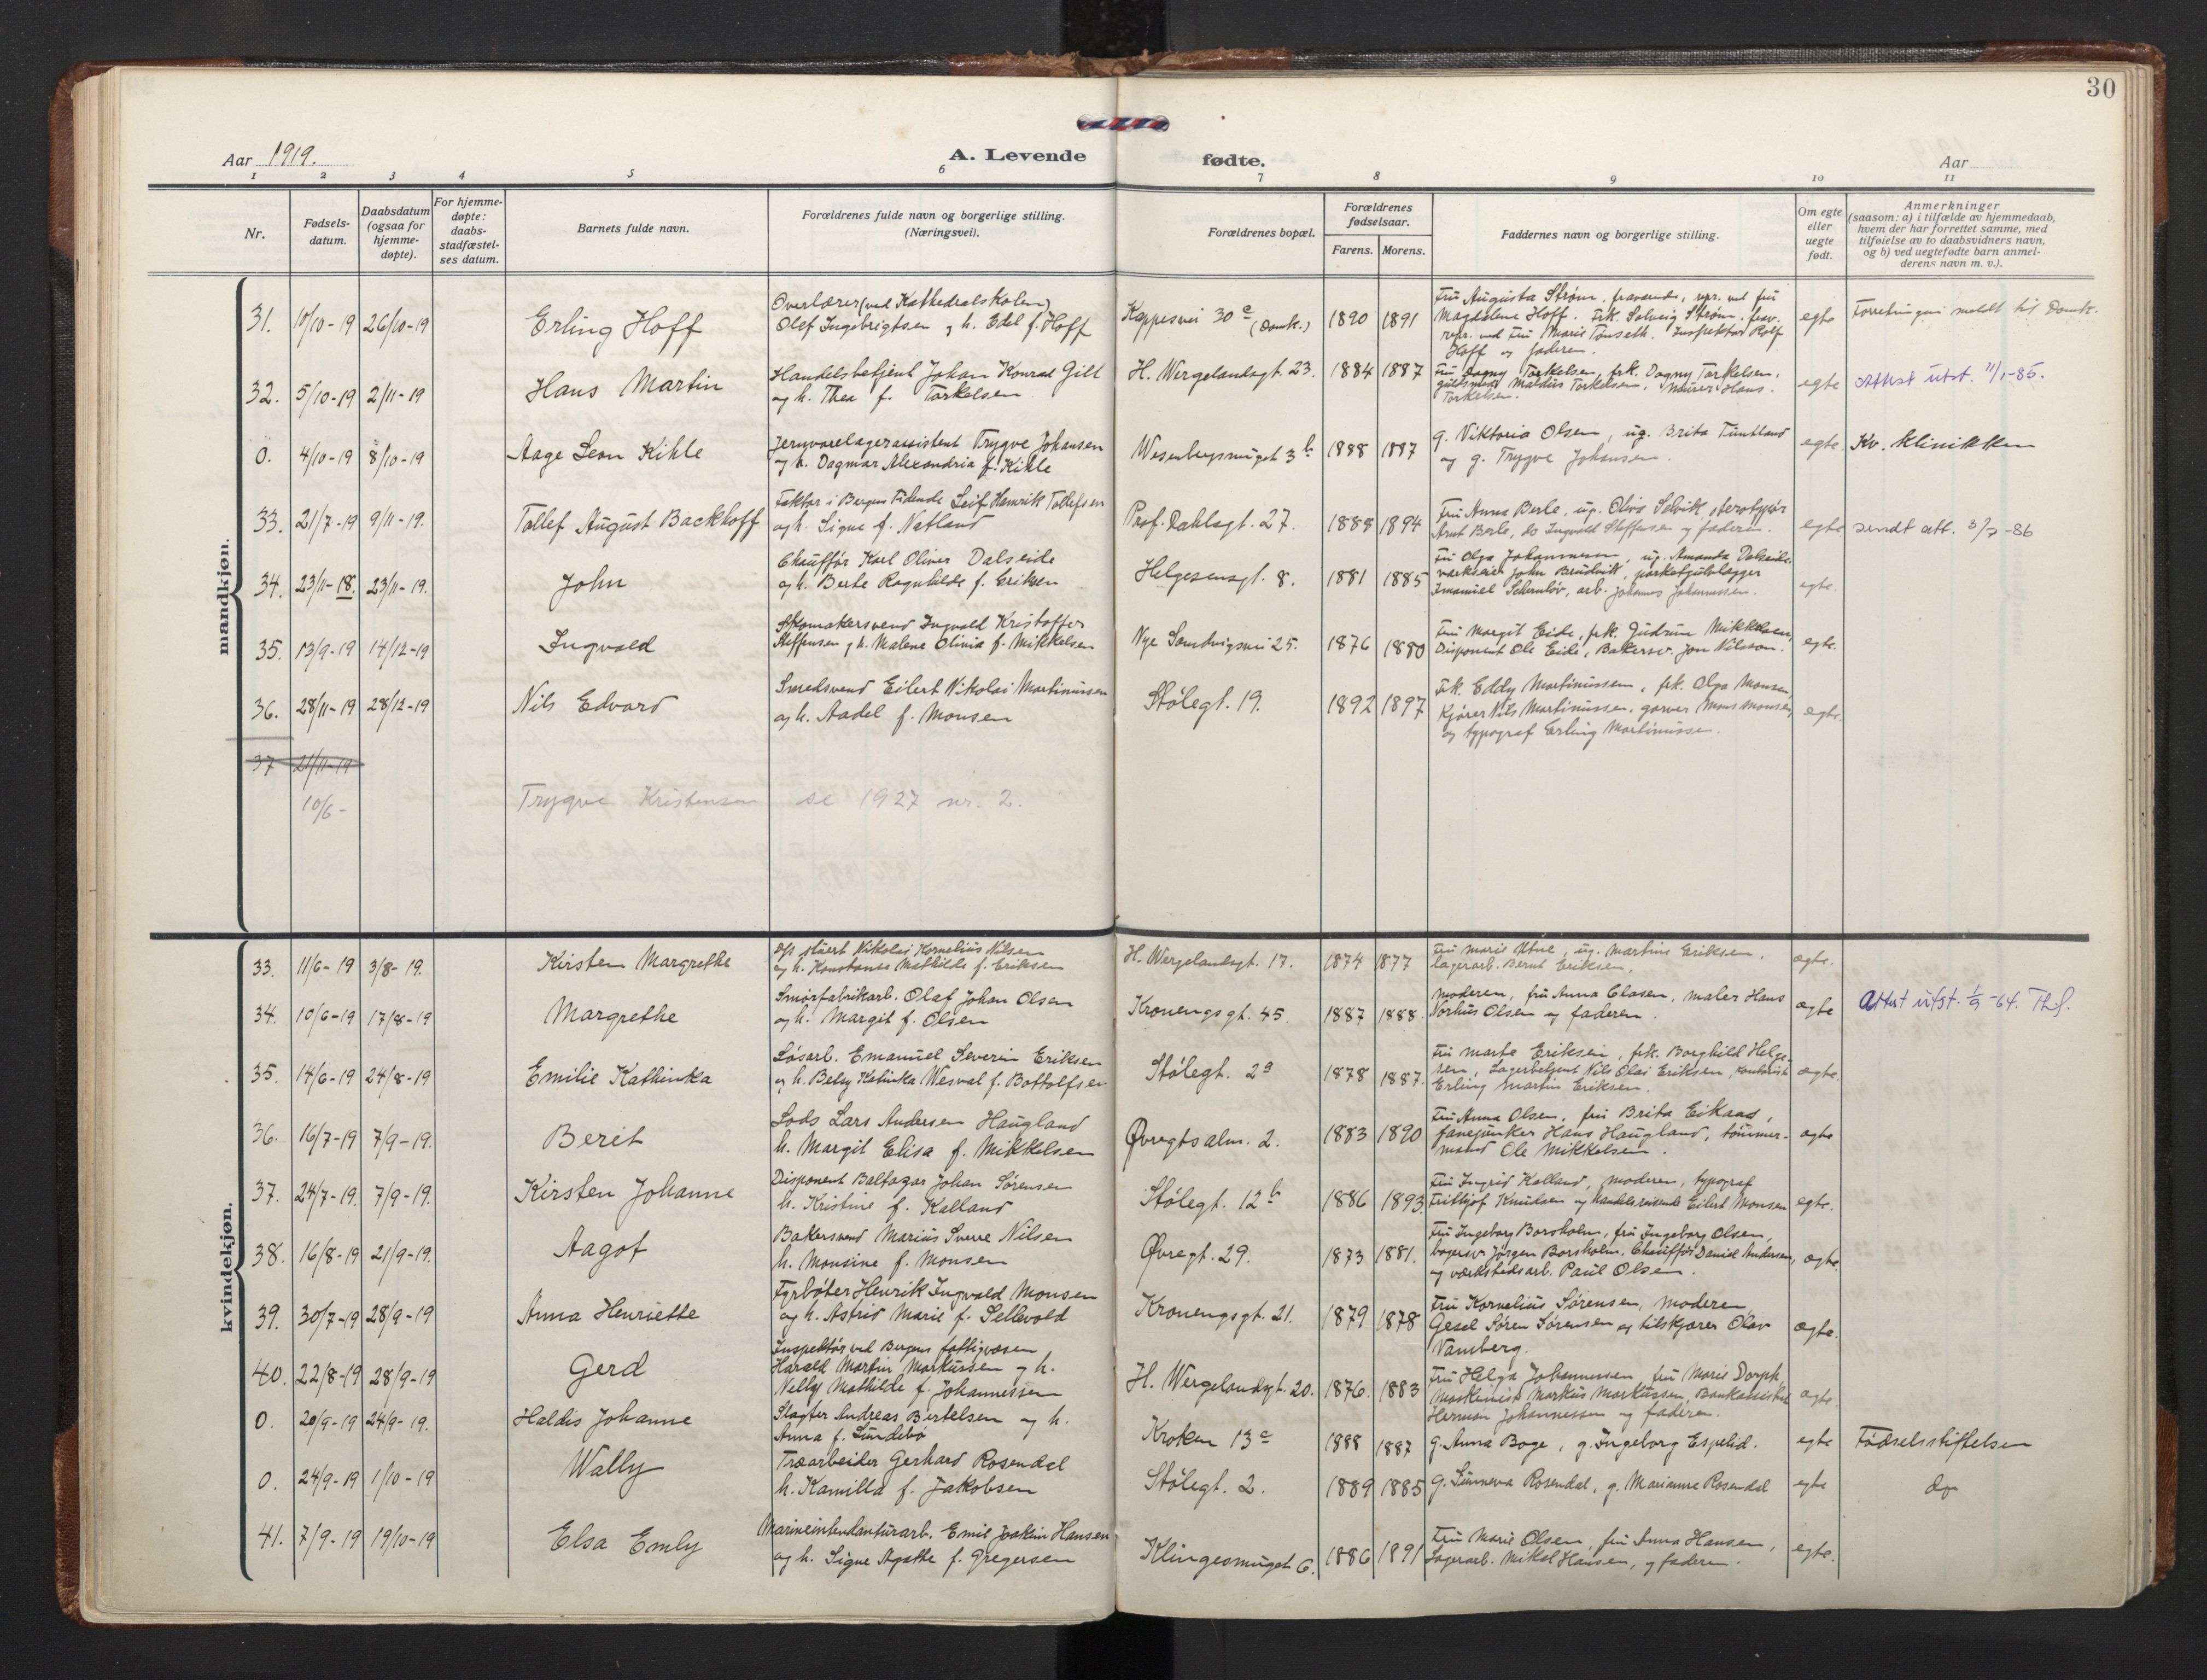 30
Aar 1919.
A. Levende
fødte.
Aar
1 2 3 4 5 6 7 8 9 10 11
Nr.
Fødsels-
datum.
Daabsdatum
(ogsaa for
hjemme-
døpte).
For hjemme-
døpte:
daabs-
stadfæstel-
ses datum.
Barnets fulde navn.
Forældrenes fulde navn og borgerlige stilling.
(Næringsvei).
Forældrenes bopæl.
Forældrenes
fødselsaar.
Farens. Morens.
Faddernes navn og borgerlige stilling.
Om egte
eller
uegte
født.
Anmerkninger
(saasom: a) i tilfælde av hjemmedaab,
hvem der har forrettet samme, med
tilføielse av to daabsvidners navn,
og b) ved uegtefødte barn anmel-
derens navn m. v.).
mandkjøn.
31. 10/10-19 26/10-19 Erling Hoff
Overlærer (ved Kathedralskolen)
Olef Ingebrigtsen og h. Edel f. Hoff
Kappesvei 30 (Domk.) 1890 1891
Fru Augusta Strøm, fraværende, repr. ved fru
Magdalene Hoff. Frk. Solveig Strøm, frav.
repr. ved fru Marie Tonseth. Inspektør Rolf
Hoff og faderen.
egte
Forretningen meldt til Domk.
32. 5/10-19 2/11-19 Hans Martin
Handelsbetjent Johan Konrad Gill
og h. Thea f. Torkelsen
H. Wergelandsgt. 23. 1884 1887
Fru Dagny Torkelsen, frk. Dagny Torkelsen,
guldsmed Maldus Torkelsen, murer Hans
Torkelsen.
egte
Attest utst. 11/1-85.
0. 4/10-19 8/10-19 Aage Leon Kihle
Jernvarelagerassistent Trygve Johansen
og h. Dagmar Alexandria f. Kihle
Wesenbergsmuget 3b 1888 1887
g. Viktoria Olsen, ug. Brita Tuntland
og g. Trygve Johansen.
egte.
Kv. klinikken
33. 21/7-19 9/11-19. Tollef August Backhoff
Faktor i Bergens Tidende Leif Henrik Tollefsen
og h. Signe f. Natland
Prof. Dahlsgt. 27. 1885 1894
Fru Anna Berle, ug. Oliva Selvik, sterotypør
Arnt Berle, do Ingvald Steffensen og faderen.
egte
sendt att. 3/7-86
34. 23/11-18. 23/11-19. John
Chauffør Karl Oliver Dalseide
og h. Berte Ragnhilde f. Eriksen
Helgesensgt. 8. 1881 1885
Fru Olga Johannessen, ug. Amanda Dalseide,
verkseier John Brudvik, parketgulvlægger
Imanuel, arb. Johannes Johannessen.
egte.
35. 13/9-19 14/12-19 Ingvald
Skomakersvend Ingvald Kristoffer
Steffensen og h. Malene Olivia f. Mikkelsen
Nye Sandvigsvei 25. 1876 1880
Fru Margit Eide, frk. Gudrun Mikkelsen,
Disponent Ole Eide, Bakersv. Jon Nilsson.
egte.
36. 28/11-19 28/12-19 Nils Edvard
Smedsvend Eilert Nikolai Martinussen
og h. Aadel f. Monsen
Stølegt. 19. 1892 1897
Frk. Eddy Martinussen, frk. Olga Monsen,
Kjører Nils Martinussen, garver Mons Monsen,
og typograf Erling Martinussen.
egte.
37 21/11-19
10/6- Trygve Kristensen se 1927 nr. 2.
kvindekjøn.
33. 11/6-19 3/8-19. Kirsten Margrethe
Nikolai Kornelius Nilsen
og h. Konstanse Mathilde f. Eriksen
H. Wergelandsgt. 17. 1874 1877
Fru Marie Utne, ug. Martine Eriksen,
lagerarb. Bernt Eriksen.
ægte.
34. 10/6-19 17/8-19 Margrethe
Smørfabrikarb. Olaf Johan Olsen
og h. Margit f. Olsen
Kroneng​sgt. 45. 1887 1888.
Moderen, fru Anna Clasen, maler Hans
Norhus Olsen og faderen.
ægte
Attest utst. 1/9-64.
35. 14/6-19 24/8-19 Emilie Kathinka
Løsarb. Emanuel Severin Eriksen
og h. Betsy Kathinka Wesval f. Bottolfsen
Stølegt. 2a 1878 1887.
Fru Marte Eriksen, frk. Borghild Helge-
sen, Lagerbetjent Nils Olai Eriksen, kontorist
Erling Martin Eriksen.
ægte.
36. 16/7-19 7/9-19. Berit
Lods Lars Andersen Haugland
h. Margit Elisa f. Mikkelsen
Øvregtsalm. 2. 1883 1890
Fru Anna Olsen, fru Brita Eikaas,
fanejunker Hans Haugland, tømmer-
mand Ole Mikkelsen.
ægte
37. 24/7-19. 7/9-19. Kirsten Johanne
Disponent Baltazar Johan Sørensen
h. Kristine f. Kalland
Stølegt. 12b 1886 1893.
Fru Ingrid Kalland, moderen, typograf
Frithjof Knudsen og handelsreisende Eilert Monsen
egte.
38. 16/8-19 21/9-19. Aagot
Bakersvend Marius Sverre Nilsen
h. Monsine f. Monsen
Øvregt. 29. 1873 1881.
Fru Ingeborg Borsholm, fru Ingeborg Olsen,
bagersv. Jørgen Borsholm, Chauffør Daniel Andersen,
og værkstedsarb. Paul Olsen.
ægte.
39. 30/7-19 28/9-19 Anna Henriette
Fyrbøter Henrik Ingvald Monsen
og h. Astrid Marie f. Sellevold
Kronengsgt. 21. 1879 1878
Fru Kornelius Sørensen, moderen,
Gesel Søren Sørensen og tilskjærer Olav
Vamberg.
ægte.
40. 22/8-19 28/9-19 Gerd
Inspektør ved Bergens fattigvæsen
Harald Martin Markussen og h.
Nelly Mathilde f. Johannessen
H. Wergelandsgt. 20. 1876. 1883
Fru Helga Johannessen, fru Marie Dorph,
Maskinist Markus Markussen, Bankassistent
Herman Johannessen og faderen.
ægte.
0. 20/9-19 24/9-19. Haldis Johanne
Slagter Andreas Bertelsen og h.
Anna f. Sundebø
Kroken 13c 1888 1887
g. Anna Boge, g. Ingeborg Espelid.
egte
Fødselsstiftelsen
0. 24/9-19 1/10-19 Wally
Træarbeider Gerhard Rosendal
h. Kamilla f. Jakobsen
Stølegt. 2. 1889 1885
g. Sunneva Rosendal, g. Marianne Rosendal
egte
do
41. 7/9-19 19/10-19 Elsa Emly
Marineintendanturarb. Emil Joakim Hansen
og h. Signe Agathe f. Gregersen
Klingesmuget 6. 1886 1891
Fru Marie Olsen, fru Anna Hansen,
Lagerarb. Mikal Hansen, og faderen.
egte.